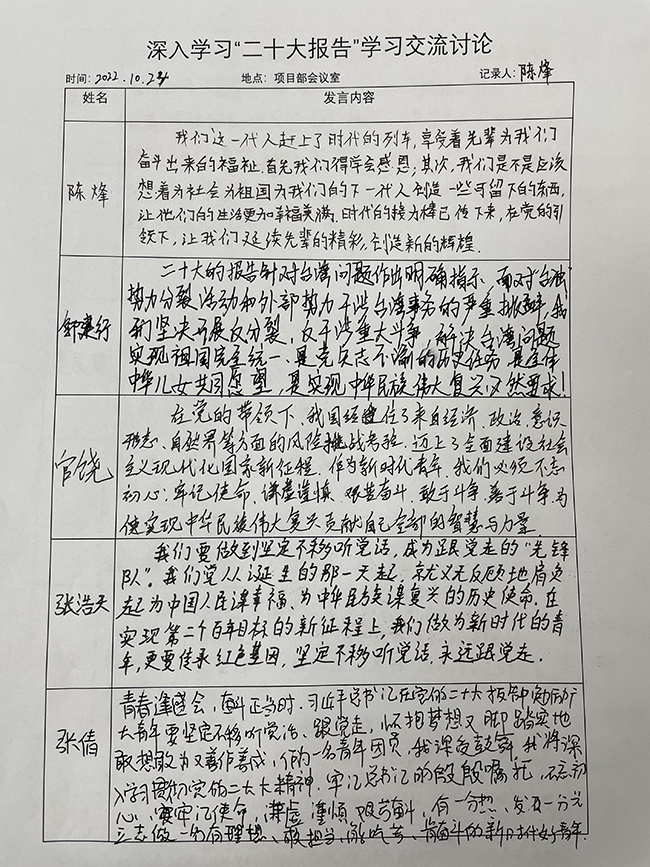 深入学习“二十大报告”学习交流讨论
时间: 2022.10.24 地点: 项目部会议室 记录人: 陈烽
姓名 发言内容
陈烽
我们这一代人赶上了时代的列车,享受着先辈为我们
奋斗出来的福祉.首先我们得学会感恩;其次,我们是不是应该
想着为社会为祖国为我们的下一代人创造一些可留下的东西,
让他们的生活更加幸福美满.时代的接力棒已传下来,在党的引
领下,让我们又延续先辈的精彩,创造新的辉煌.
二十大的报告针对台湾问题作出明确指示.面对“台独”
势力分裂活动和外部势力干涉台湾事务的严重挑衅,我
们坚决开展反分裂,反干涉重大斗争,解决台湾问题
实现祖国完全统一、是党矢志不渝的历史任务,是全体
中华儿女共同愿望,是实现中华民族伟大复兴必然要求!
官饶
在党的带领下,我国经受住了来自经济、政治、意识
形态、自然界等方面的风险挑战考验,迈上了全面建设社会
主义现代化国家新征程.作为新时代青年,我们必须不忘
初心、牢记使命、谦虚谨慎、艰苦奋斗、敢于斗争、善于斗争,为
使实现中华民族伟大复兴贡献自己全部的智慧与力量
张浩天
我们要做到坚定不移听党话,成为跟党走的“先锋
队”。我们党从诞生的那一天起,就义无反顾地肩负
起为中国人民谋幸福、为中华民族谋复兴的历史使命.在
实现第二个百年目标的新征程上,我们做为新时代的青
年,更要传承红色基因,坚定不移听党话,永远跟党走.
张倩
青春逢盛会,奋斗正当时.习近平总书记在党的二十大报告中勉励广
大青年要坚定不移听党话、跟党走,怀抱梦想又脚踏实地
敢想敢为又善作善成,作为一名青年团员,我深受鼓舞,我将深
入学习贯彻党的二十大精神.牢记总书记的殷殷嘱托,不忘初
心、牢记使命,谦虚谨慎,艰苦奋斗,有一分热、发一分光
立志做一名有理想、敢担当、能吃苦、肯奋斗的新时代好青年.